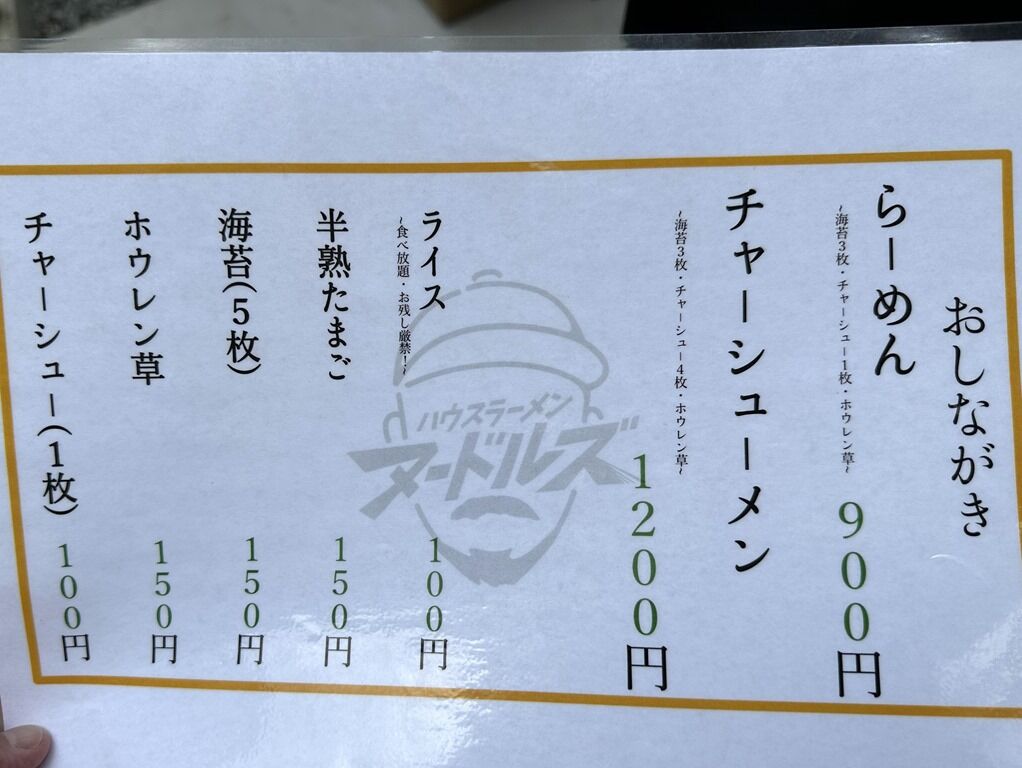 おしながき
らーめん
~海苔3枚・チャーシュー1枚・ホウレン草~
900円
チャーシューメン
~海苔3枚・チャーシュー4枚・ホウレン草~
1200円
ライス
~食べ放題・お残し厳禁!~
100円
半熟たまご
150円
海苔(5枚)
150円
ホウレン草
150円
チャーシュー(1枚)
100円
ハウスラーメン
ヌードルズ